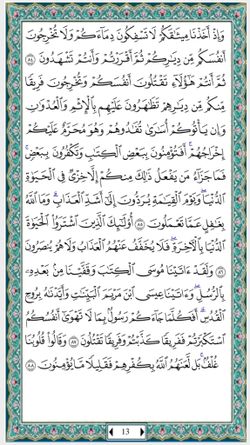 وَإِذْ أَخَذْنَا مِيثَاقَكُمْ لَا تَسْفِكُونَ دِمَاءَكُمْ وَلَا تُخْرِجُونَ
أَنفُسَكُم مِّن دِيَارِكُمْ ثُمَّ أَقْرَرْتُمْ وَأَنتُمْ تَشْهَدُونَ ٨٤
ثُمَّ أَنتُمْ هَٰؤُلَاءِ تَقْتُلُونَ أَنفُسَكُمْ وَتُخْرِجُونَ فَرِيقًا
مِّنكُم مِّن دِيَارِهِمْ تَظَاهَرُونَ عَلَيْهِم بِالْإِثْمِ وَالْعُدْوَانِ
وَإِن يَأْتُوكُمْ أُسَارَىٰ تُفَادُوهُمْ وَهُوَ مُحَرَّمٌ عَلَيْكُمْ
إِخْرَاجُهُمْ ۚ أَفَتُؤْمِنُونَ بِبَعْضِ الْكِتَابِ وَتَكْفُرُونَ بِبَعْضٍ ۚ
فَمَا جَزَاءُ مَن يَفْعَلُ ذَٰلِكَ مِنكُمْ إِلَّا خِزْيٌ فِي الْحَيَاةِ
الدُّنْيَا ۖ وَيَوْمَ الْقِيَامَةِ يُرَدُّونَ إِلَىٰ أَشَدِّ الْعَذَابِ ۗ وَمَا اللَّهُ
بِغَافِلٍ عَمَّا تَعْمَلُونَ ٨٥ أُولَٰئِكَ الَّذِينَ اشْتَرَوُا الْحَيَاةَ
الدُّنْيَا بِالْآخِرَةِ ۖ فَلَا يُخَفَّفُ عَنْهُمُ الْعَذَابُ وَلَا هُمْ يُنصَرُونَ
٨٦ وَلَقَدْ آتَيْنَا مُوسَى الْكِتَابَ وَقَفَّيْنَا مِن بَعْدِهِ
بِالرُّسُلِ ۖ وَآتَيْنَا عِيسَى ابْنَ مَرْيَمَ الْبَيِّنَاتِ وَأَيَّدْنَاهُ بِرُوحِ
الْقُدُسِ ۗ أَفَكُلَّمَا جَاءَكُمْ رَسُولٌ بِمَا لَا تَهْوَىٰ أَنفُسُكُمُ
اسْتَكْبَرْتُمْ فَفَرِيقًا كَذَّبْتُمْ وَفَرِيقًا تَقْتُلُونَ ٨٧ وَقَالُوا قُلُوبُنَا
غُلْفٌ ۚ بَل لَّعَنَهُمُ اللَّهُ بِكُفْرِهِمْ فَقَلِيلًا مَّا يُؤْمِنُونَ ٨٨
13